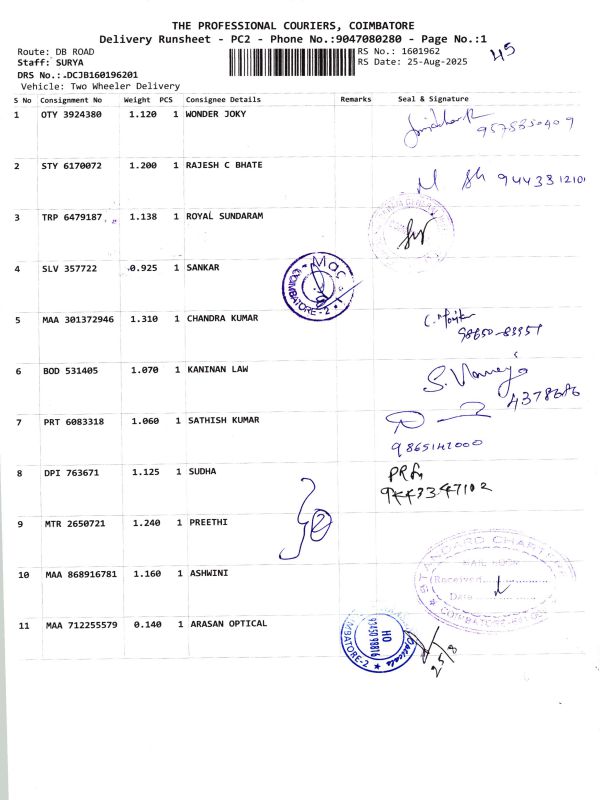 THE PROFESSIONAL COURIERS, COIMBATORE
Delivery Runsheet - PC2 - Phone No.:9047080280 - Page No.:1
Route: DB ROAD
Staff: SURYA
DRS No.:.DCJB160196201
Vehicle: Two Wheeler Delivery
RS No.: 1601962
RS Date: 25-Aug-2025
45
S No Consignment No Weight PCS Consignee Details Remarks Seal & Signature
1 OTY 3924380 1.120 1 WONDER JOKY
2 STY 6170072 1.200 1 RAJESH C BHATE
3 TRP 6479187 1.138 1 ROYAL SUNDARAM
4 SLV 357722 0.925 1 SANKAR
COIMBATORE-2
5 MAA 301372946 1.310 1 CHANDRA KUMAR
98650-83951
6 BOD 531405 1.070 1 KANINAN LAW
7 PRT 6083318 1.060 1 SATHISH KUMAR
9865142000
8 DPI 763671 1.125 1 SUDHA
9443347102
9 MTR 2650721 1.240 1 PREETHI
10 MAA 868916781 1.160 1 ASHWINI
STANDARD CHARTERED
Received
Date
11 MAA 712255579 0.140 1 ARASAN OPTICAL
HO
93450 98816
25/8